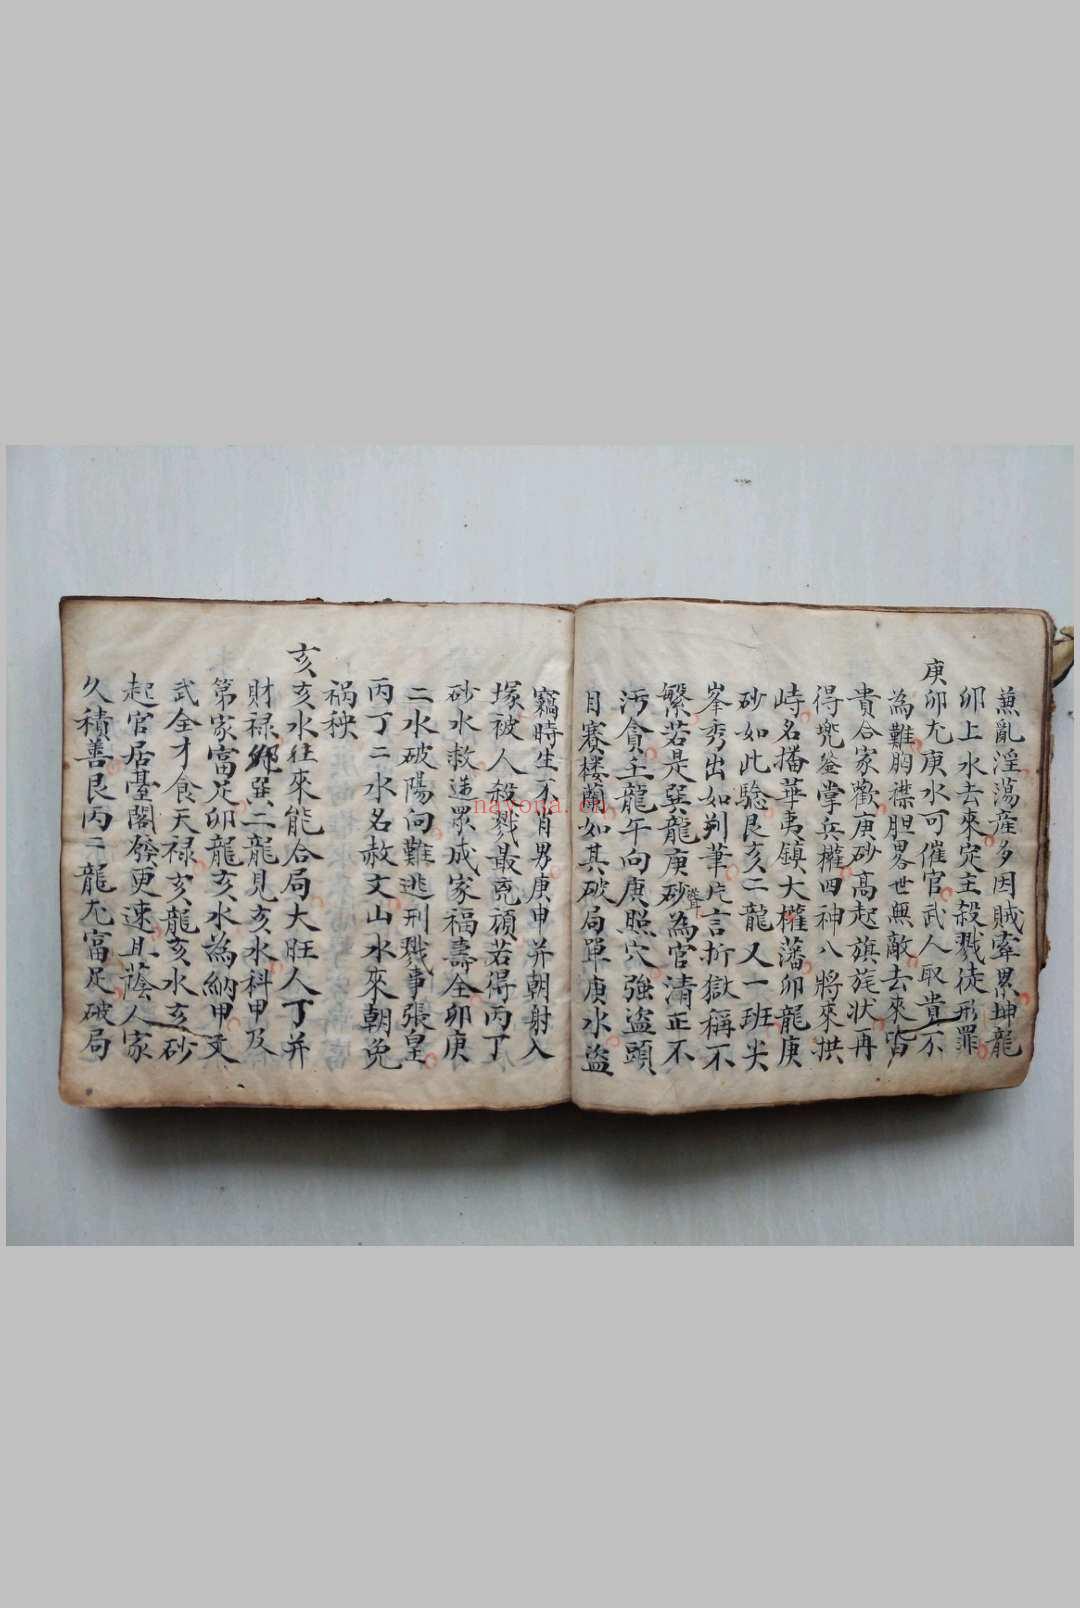 蕉亂淫蕩產多因賊牽累坤龍
卯上水去來定主殺戮徒刑罪
庚卯尤庚水可催官武人取貴不
為難胸襟胆畧世無敵去來皆
貴合家歡庚砂高起旗旄状再
得兜鍪掌兵權四神八將來拱
峙名播華夷鎮大權藩卯龍庚
砂如此驗艮亥二龍又一班尖
峯秀出如判筆片言折獄稱不
繁若是巽龍庚砂聳為官清正不
污貪壬龍午向庚照穴強盜頭
目賽楼蘭如其破局單庚水盜
竊時生不肖男庚申并朝射入
塚被人殺戮最兇頑若得丙丁
砂水救進眾成家福壽全卯庚
二水破陽向難逃刑戮事張皇
丙丁二水名赦文山水來朝免
禍秧
亥亥水往來能合局大旺人丁并
財禄卯巽二龍見亥水科甲及
第家富足卯龍亥水為納甲文
武全才食天禄亥龍亥水亥砂
起官居臺閣發更速且蔭人家
久積善艮丙二龍尤富足破局
nayona.cn